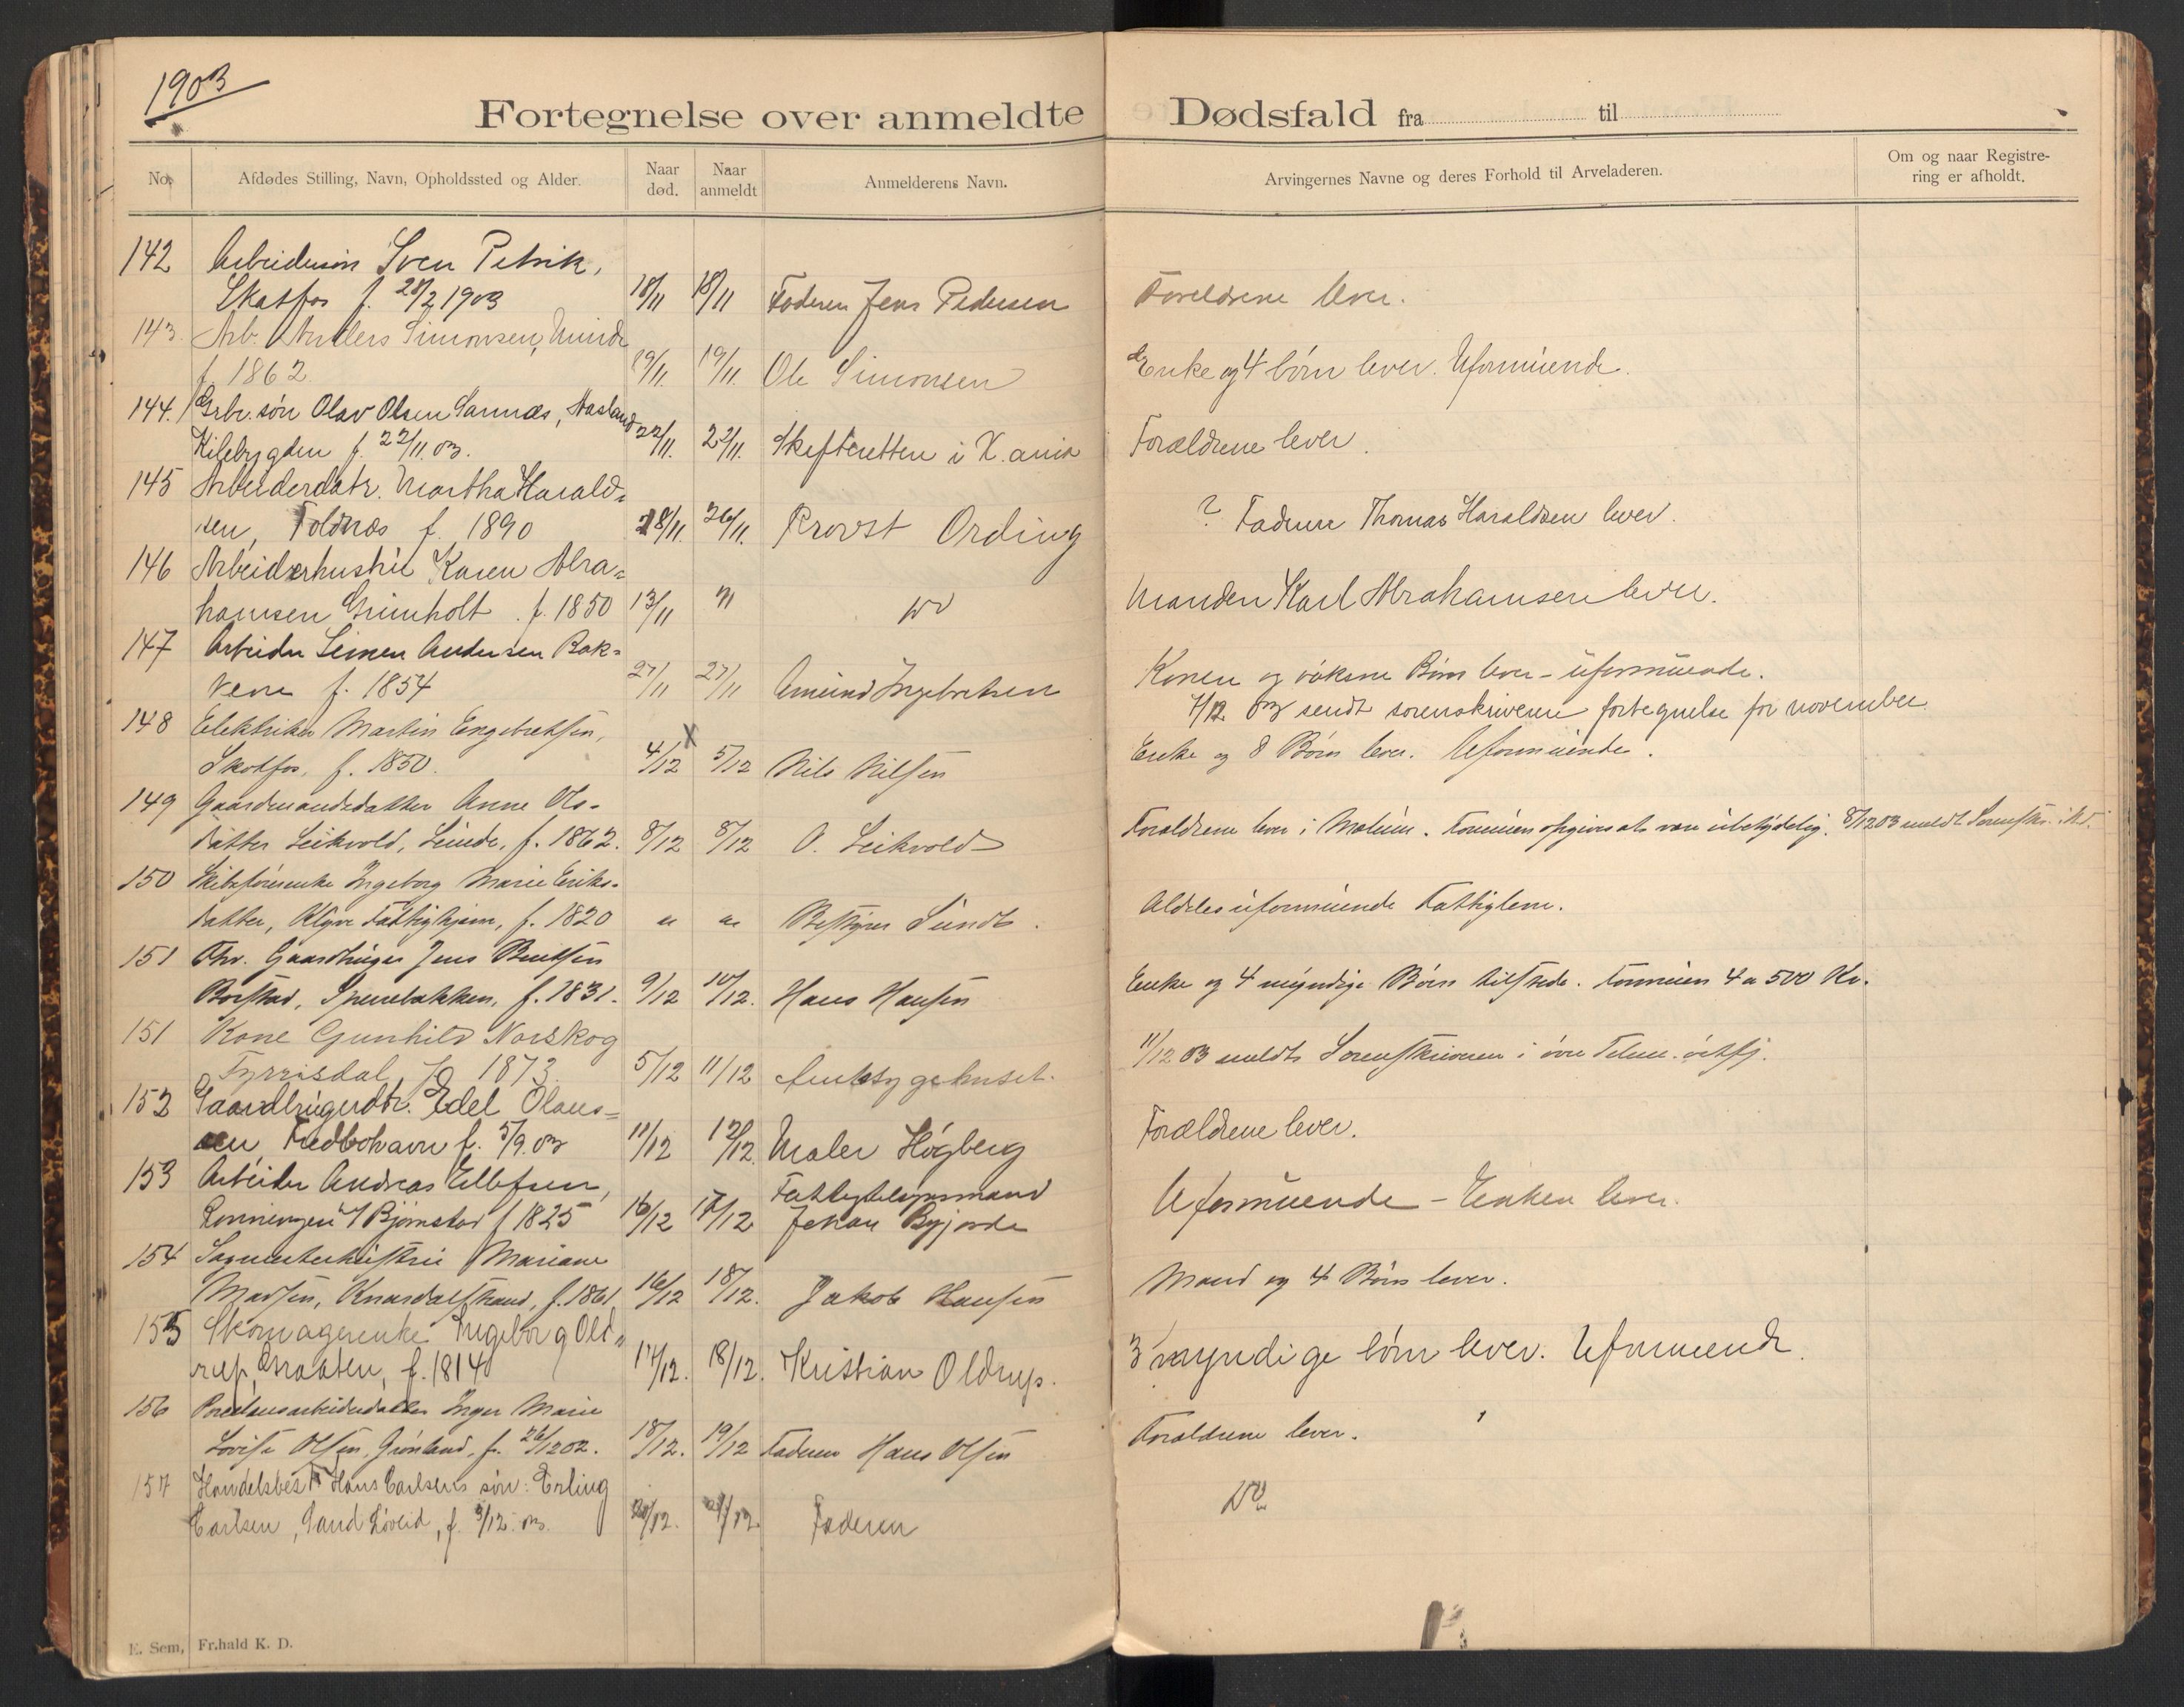 1903
Fortegnelse over anmeldte Dødsfald fra til
No. Afdødes Stilling, Navn, Opholdssted og Alder. Naar død. Naar anmeldt Anmelderens Navn. Arvingernes Navne og deres Forhold til Arveladeren. Om og naar Registrering er afholdt.
142 Arbeidersøn Sven Petrik,
Skatfos f. 28/2 1903 18/11 18/11 Faderen Jens Pedersen Foreldrene lever.
143. Arb. Anders Simonsen,
f. 1862 19/11. 19/11. Ole Simonsen Enke og 4 børn lever. Uformuende.
144. Grbr. søn Olav Olsen Sannæs,
Kilebygden f. 22/11.03. 22/11. 22/11. Skifteretten i X.ania Forældrene lever.
145 Arbeiderdatr. Martha Harald=
sen, Foldnæs f. 1890 18/11. 26/11. Provst Ording ? Faderen Thomas Haraldsen lever.
146 Arbeiderhustru Karen Abra=
hamsen Grimholt. f. 1850 13/11 " do Manden Karl Abrahamsen lever.
147 Arbeider Simen Andersen Bak=
vene f. 1854 27/11 27/11 Amund Ingebretsen Konen og voksne Børn lever - uformuende.
7/12 03 sendt sorenskriveren fortegnelse for november
148 Elektriker Martin Engebretsen,
Skotfos, f. 1850. 4/12 x 5/12 Nils Nilsen Enke og 8 Børn lever. Uformuende.
149 Gaardmandsdatter Anne Ols=
datter Leikvold, f. 1862. 8/12 8/12 O. Leikvold Forældrene lever i Mælum. Formuen opgives at være ubetydelig. 8/12 03 meldt
150 Skibsførerenke Ingeborg Marie Eriks=
datter, Klyve Fattighjem, f. 1820 " " Bestyrer Sundt. Aldeles uformuende Fattiglem.
151 Fhv. Gaardbruger Jens Bentsen
Borstad, f. 1831. 9/12 10/12. Hans Hansen Enke og 4 myndige Børn tilstede. Formuen 4 a 500 Kr.
151 Kone Gunhild Norskog
Fyrrisdal, f. 1873. 5/12 11/12 Amtssygehuset. 11/12 03 meldt Sorenskriveren i øvre Telem. østfj.
152 Gaardbrugerdtr. Edel Olaus=
sen, f. 5/9.03 11/12 12/12. Maler Høgberg Forældrene lever.
153 Arbeider Andreas Ellefsen,
Rønningen u/ Bjørnstad f 1825 16/12 17/12 Fattigtilsynsmand
Johan Uformuende - Enken lever.
154 Hustru Mariane
Madsen, Knardalstrand, f. 1861. 16/12 18/12. Jakob Hansen Mand og 4 Børn lever.
155 Skomagerenke Ingeborg Old=
rup, Graaten, f. 1814 17/12. 18/12. Kristian Oldrup. 3 myndige børn lever. Uformuende.
156 Porcelænsarbeiderdatter Inger Marie
Lovise Olsen, Grønland, f. 26/12 02. 18/12. 19/12 Faderen Hans Olsen Forældrene lever.
157 Handelsbest. Hans Carlsens søn: Erling
Carlsen, Sand Løveid, f. 3/12.03. Faderen Do
E. Sem, Fr.hald K. D.